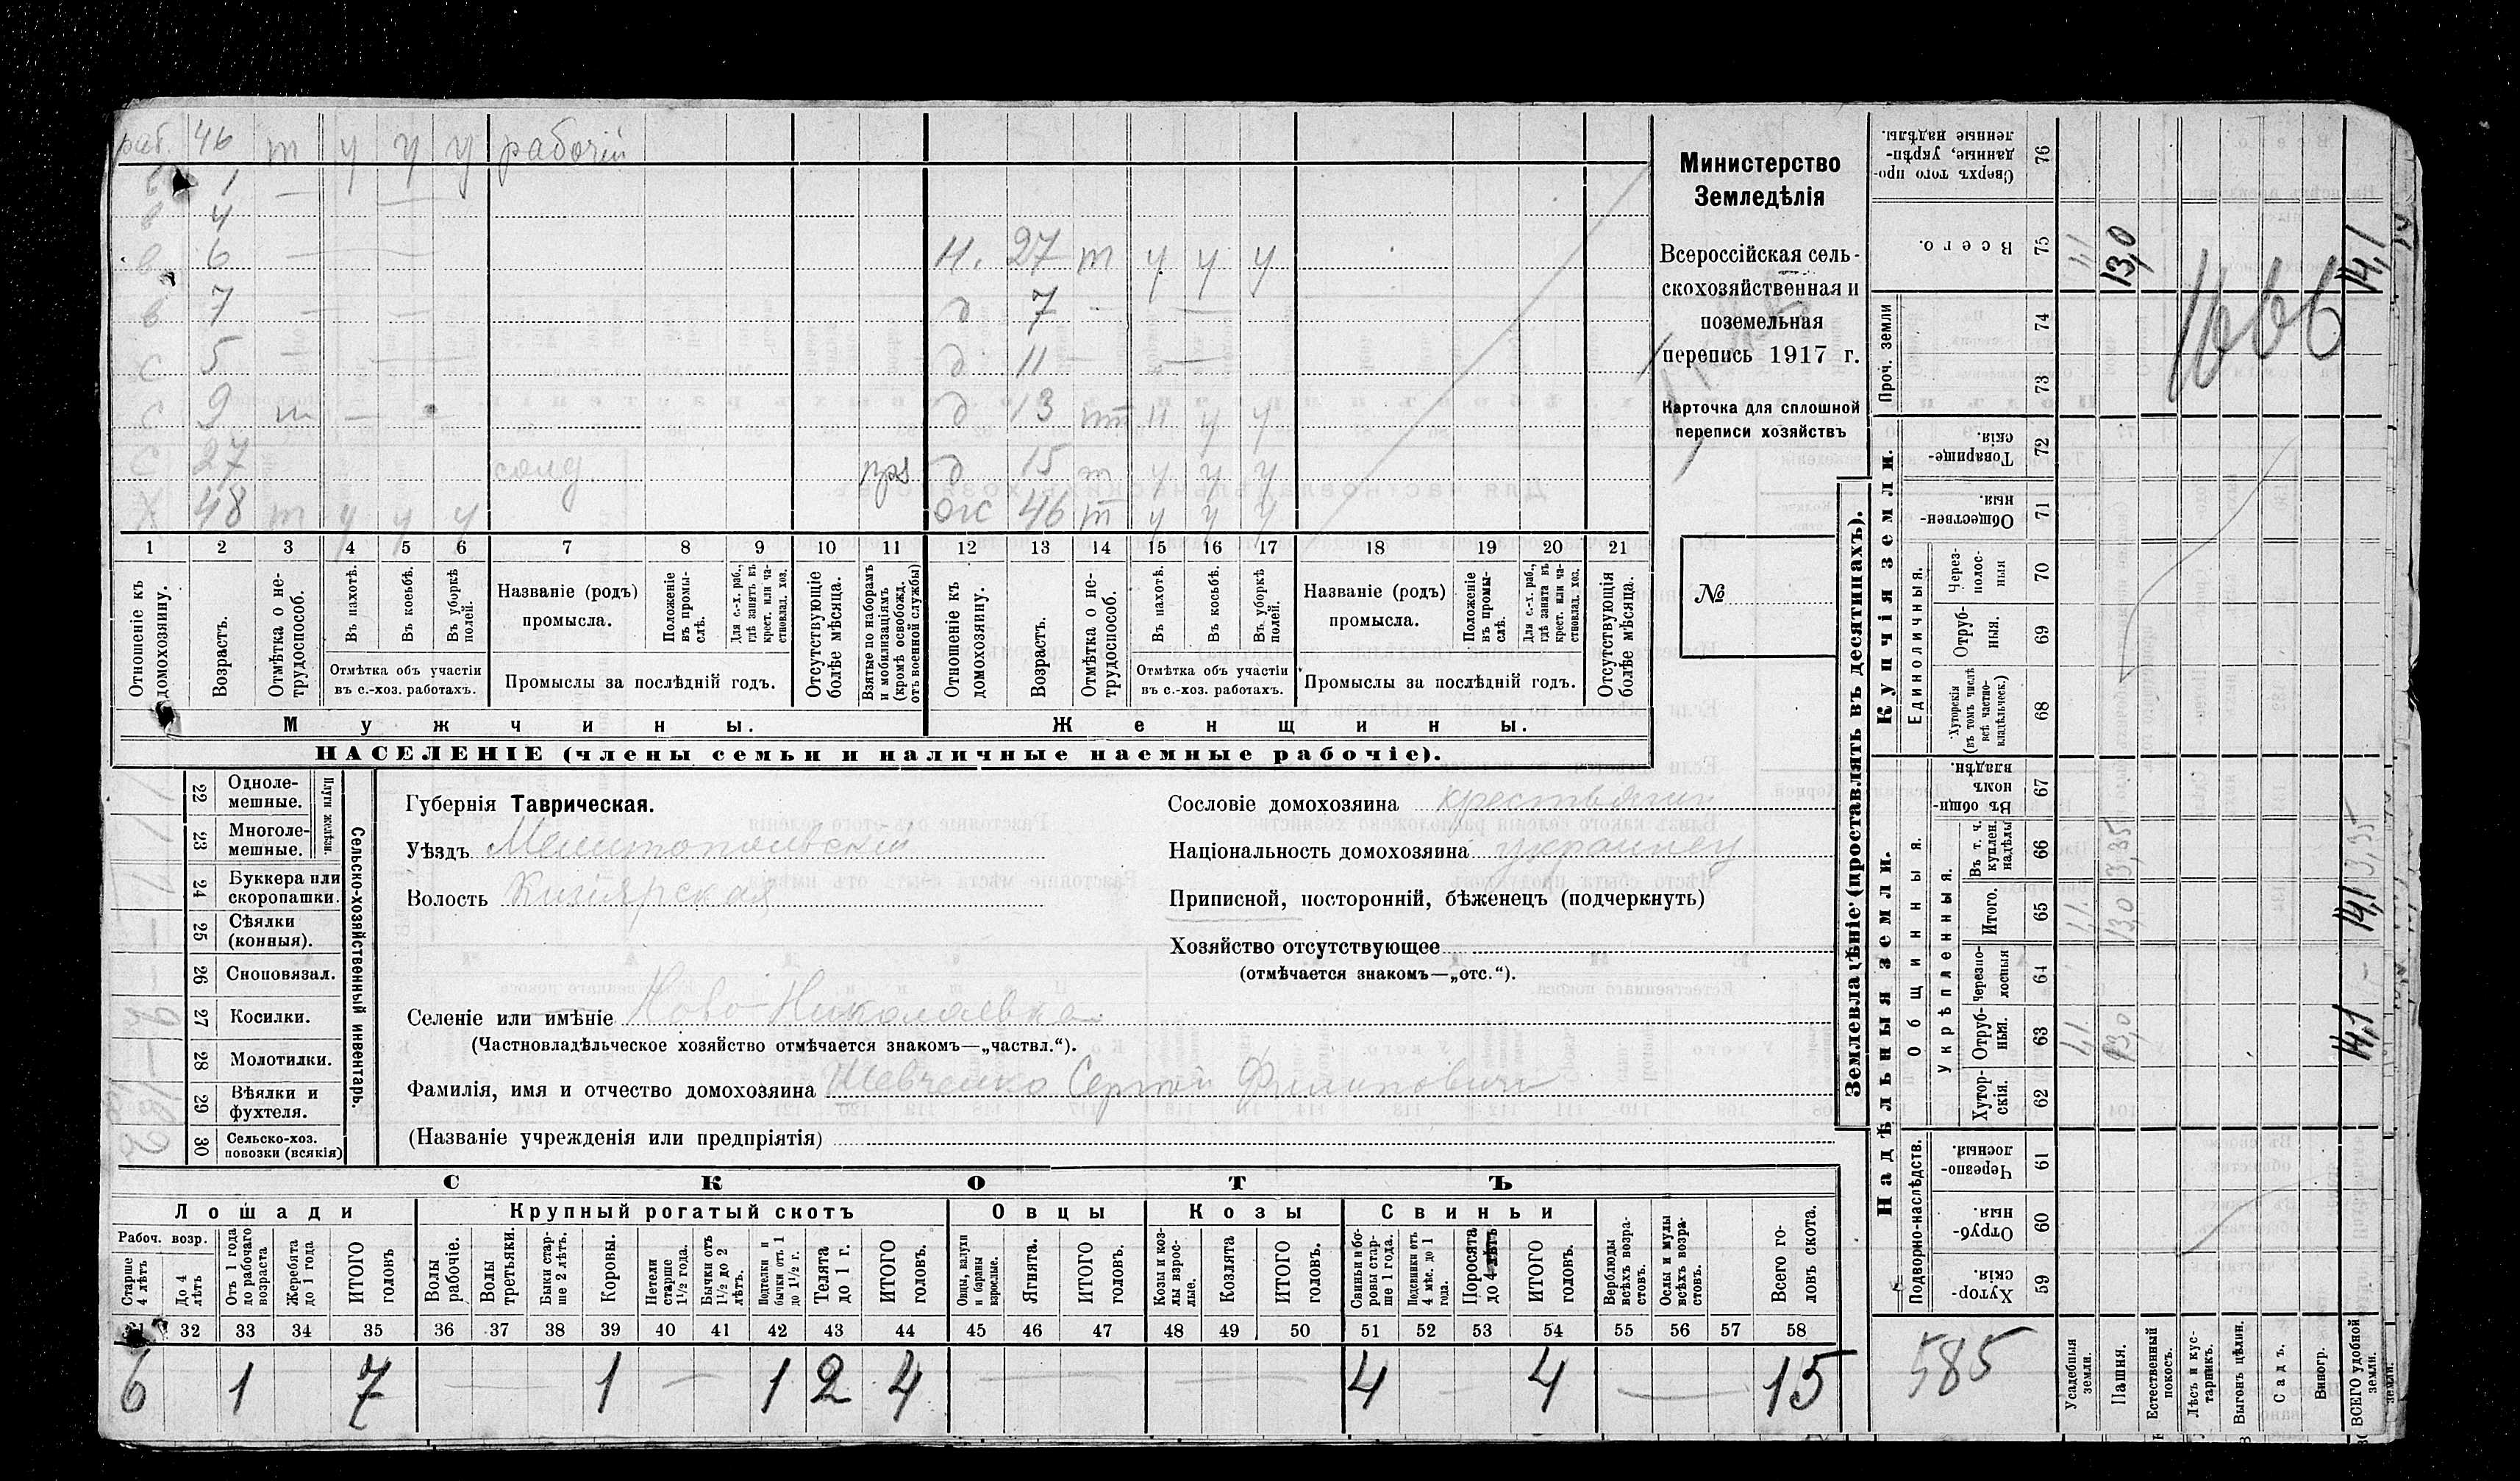 раб. 46 т у у у рабочій
1
в 4
в 6 Н. 27 т у у у
в 7 д 7
С 5 д 11
С 9 д 13 у у
С 27 солд. д 15 т у у у
Х 48 т у у у 46 т у у у
1 2 3 4 5 6 7 8 9 10 11 12 13 14 15 16 17 18 19 20 21
Отношеніе къ домохозяину.
Возрастъ.
Отмѣтка о не-трудоспособ.
Въ пахотѣ.
Въ косьбѣ.
Въ уборкѣ полей.
Отмѣтка объ участіи въ с.-хоз. работахъ.
Названіе (родъ) промысла.
Положеніе въ промы-слѣ.
Для с.-х. раб., гдѣ занятъ въ крест. или ча-стновлад. хоз.
Промыслы за послѣдній годъ.
Отсутствующіе болѣе мѣсяца.
Взятые по наборамъ и мобилизаціямъ (кромѣ освобожд. отъ военной службы)
Отношеніе къ домохозяину.
Возрастъ.
Отмѣтка о не-трудоспособ.
Въ пахотѣ.
Въ косьбѣ.
Въ уборкѣ полей.
Отмѣтка объ участіи въ с.-хоз. работахъ.
Названіе (родъ) промысла.
Положеніе въ промы-слѣ.
Для с.-х. раб., гдѣ занята въ крест. или ча-стновлад. хоз.
Промыслы за послѣдній годъ.
Отсутствующія болѣе мѣсяца.
Мужчины. Женщины.
НАСЕЛЕНІЕ (члены семьи и наличные наемные рабочіе).
Министерство
Земледѣлія
Всероссійская сель-
скохозяйственная и
поземельная
перепись 1917 г.
Карточка для сплошной
переписи хозяйствъ
№
22 Одноле-мешные.
23 Многоле-мешные.
Плуги желѣзн.
24 Буккера или скоропашки.
25 Сѣялки (конныя).
26 Сноповязал.
27 Косилки.
28 Молотилки.
29 Вѣялки и фухтеля.
30 Сельско-хоз. повозки (всякія)
Сельско-хозяйственный инвентарь.
Губернія Таврическая.
Уѣздъ Мелитопольскій
Волость Кизіярская
Сословіе домохозяина крестьянин
Національность домохозяина украинец
Приписной, посторонній, бѣженецъ (подчеркнуть)
Хозяйство отсутствующее
(отмѣчается знакомъ—„отс.“).
Селеніе или имѣніе Ново-Николаевка
(Частновладѣльческое хозяйство отмѣчается знакомъ—„частвл.“).
Фамилія, имя и отчество домохозяина Шевченко Сергей Филипович
(Названіе учрежденія или предпріятія)
СКОТЪ
Лошади Крупный рогатый скотъ Овцы Козы Свиньи
Рабоч. возр.
Старше 4 лѣтъ
До 4 лѣтъ
Отъ 1 года до рабочаго возраста
Жеребята до 1 года
ИТОГО головъ
Волы рабочіе.
Волы третьяки.
Быки стар-ше 2 лѣтъ.
Коровы.
Нетели старше 1½ года.
Бычки отъ 1½ до 2 лѣтъ.
Подтелки и бычки отъ 1 до 1½ г.
Телята до 1 г.
ИТОГО головъ.
Овцы, валухи и бараны взрослые.
Ягнята.
ИТОГО головъ.
Козы и коз-лы взрос-лые.
Козлята
ИТОГО головъ.
Свиньи и бо-ровы стар-ше 1 года.
Подсвинки отъ 4 мѣс. до 1 года.
Поросята до 4
ИТОГО головъ.
Верблюды всѣхъ возра-стовъ.
Ослы и мулы всѣхъ возра-стовъ.
Всего го-ловъ скота.
31 32 33 34 35 36 37 38 39 40 41 42 43 44 45 46 47 48 49 50 51 52 53 54 55 56 57 58
6 1 7 — 1 — 1 2 4 — — 4 — 4 — 15
Землевладѣніе (проставлять въ десятинахъ).
Сверхъ того про-данные, укрѣп-ленные надѣлы. 76
Всего. 75 11 13,0 14,1
Проч. земли 74 73
1666
Купчія земли.
Товарище-скія. 72
Обществен-ныя 71
Единоличныя.
Через-полос-ныя 70
Отруб-ныя. 69
Хуторскія (въ томъ числѣ всѣ частно-владѣльческ.) 68
Надѣльныя земли.
Общинныя.
Въ общи-номъ владѣн. 67
Укрѣпленныя.
Въ т. ч. куплен. надѣлы 66
Итого. 65 13,0 14,1
Черезпо-лосныя 64
Отруб-ныя. 63 13,0 14,1
Хутор-скія. 62
Подворно-наслѣдств.
Черезпо-лосныя. 61
Отруб-ныя. 60
Хутор-скія. 59
585
Усадебныя земли.
Пашня.
Естественный покосъ.
Лѣсъ и кус-тарникъ.
Выгонъ цѣлин.
Садъ.
Виногр.
ВСЕГО удобной земли.